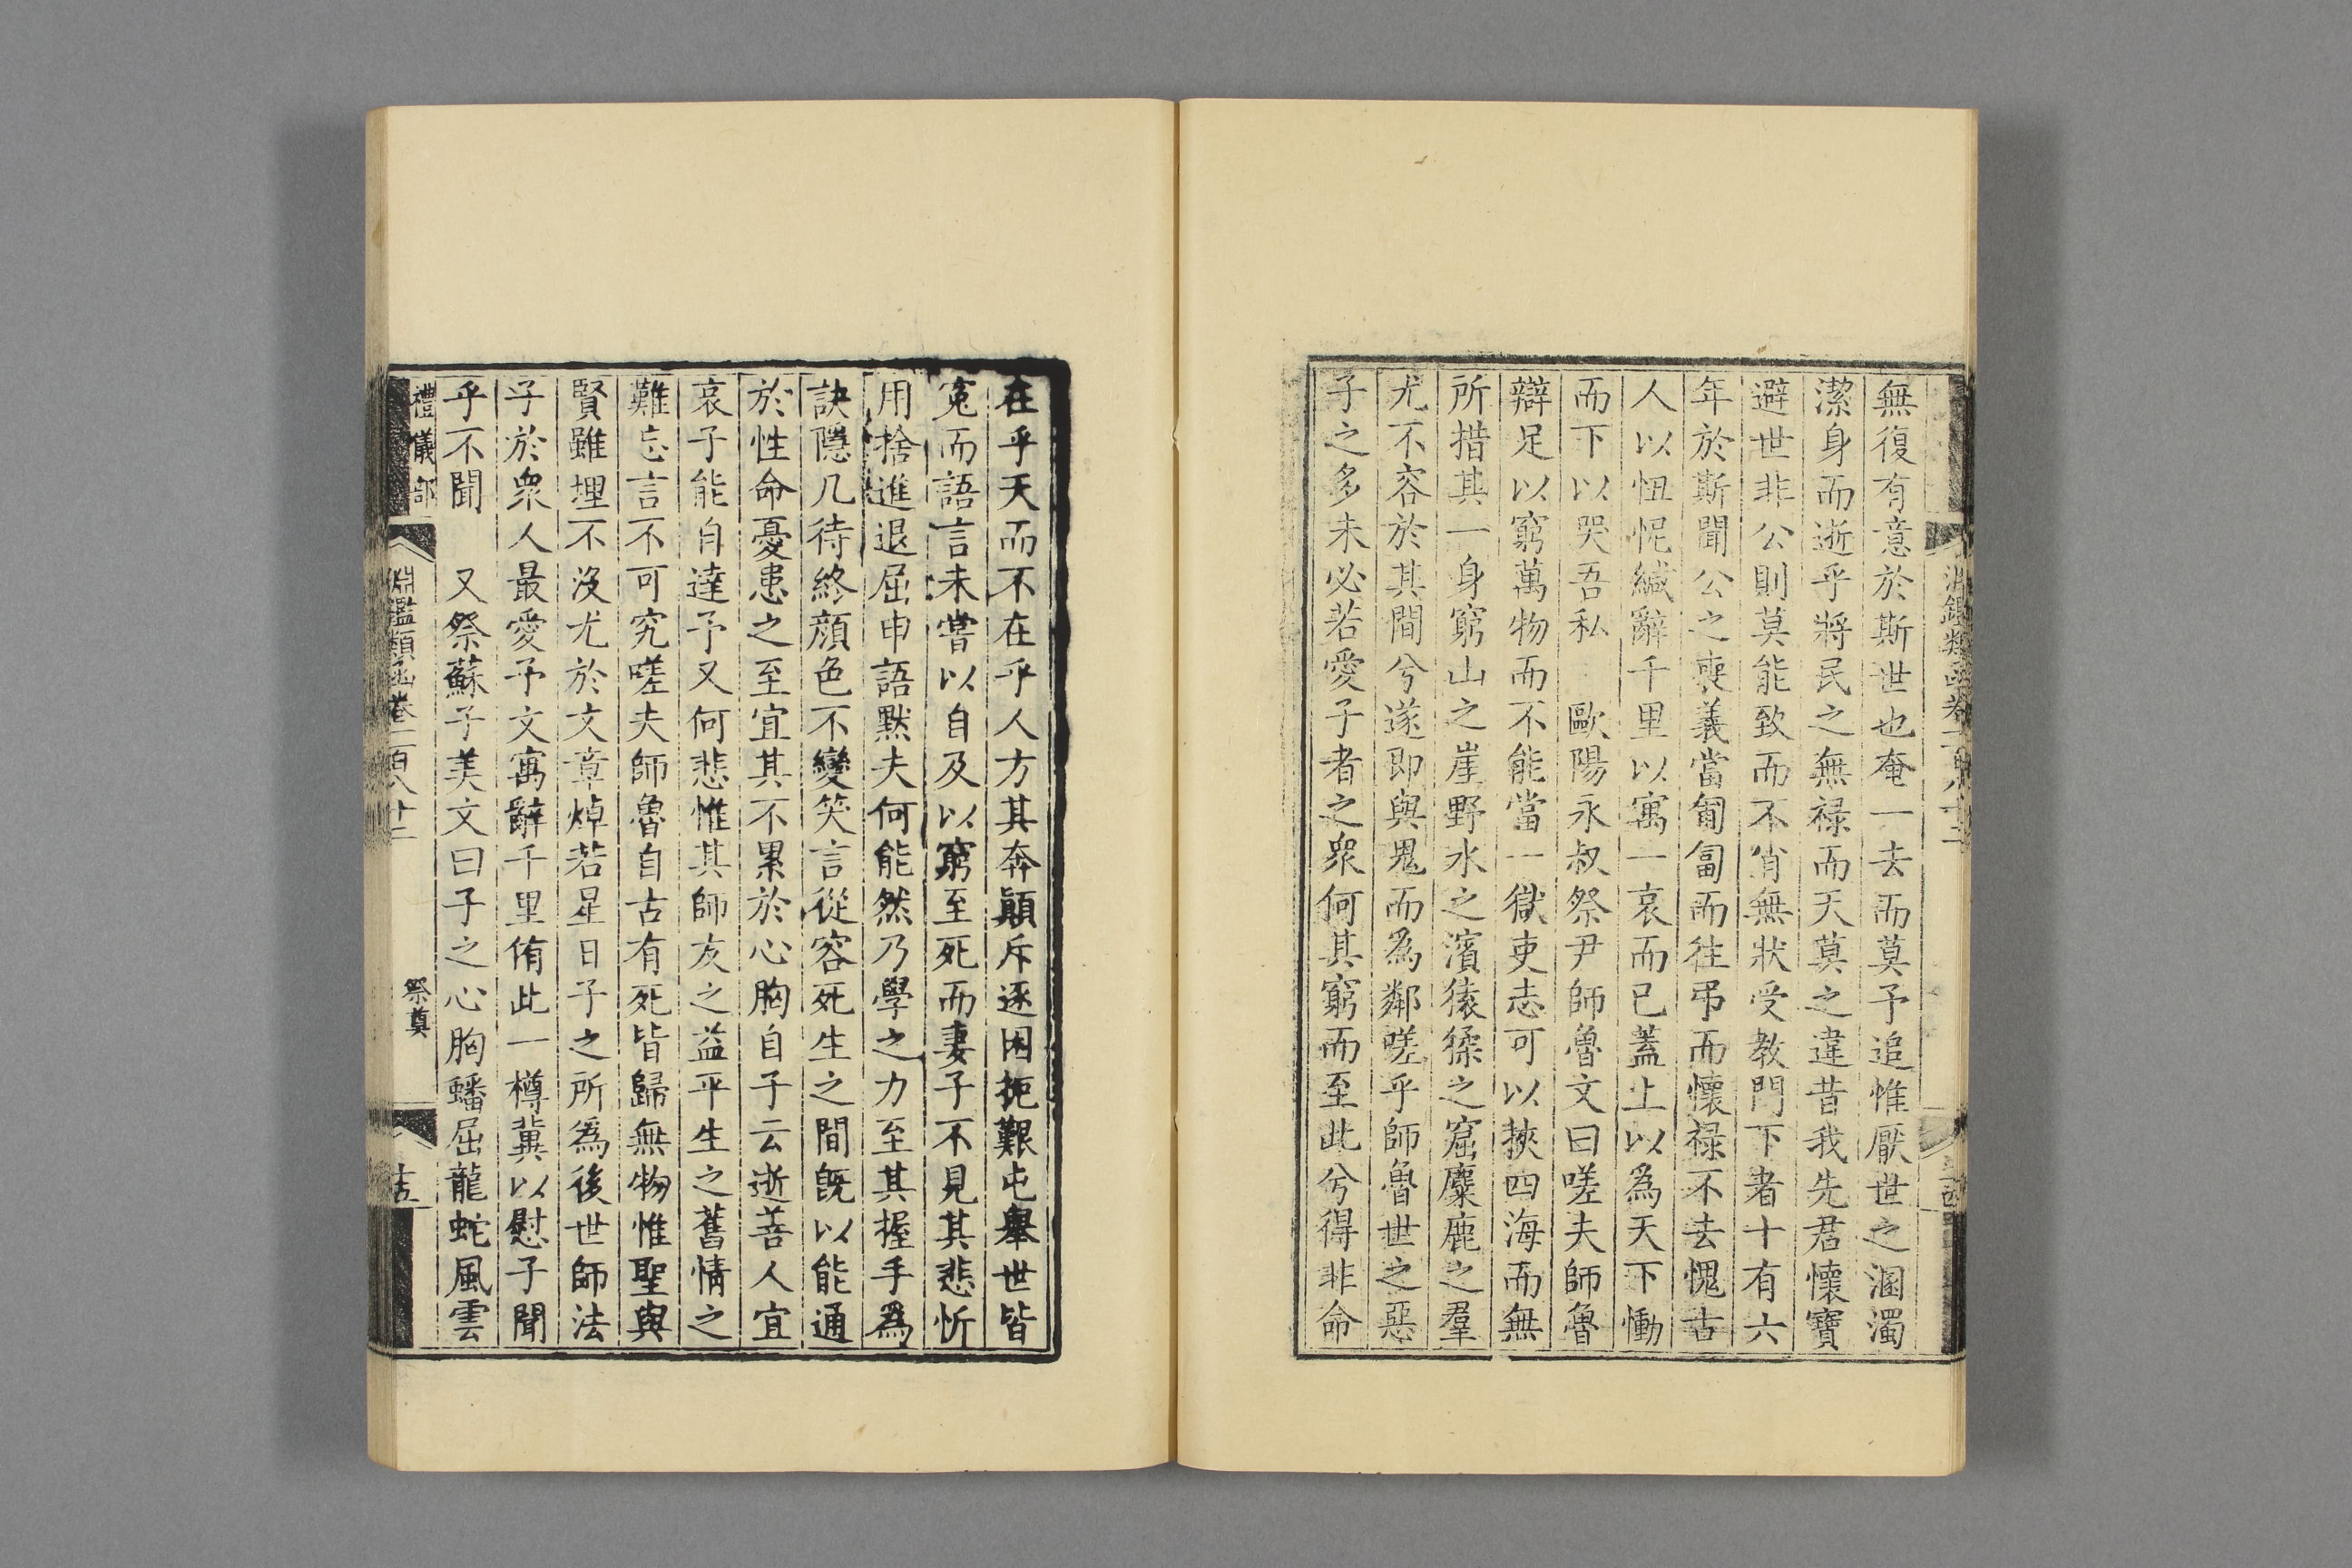 無復有意於斯世也奄一去而莫予追惟厭世之溷濁
潔身而逝乎將民之無祿而天莫之違昔我先君懷寶
避世非公則莫能致而不肖無狀受教門下者十有六
年於斯聞公之喪義當匍匐而往弔而懷祿不去愧古
人以忸怩緘辭千里以寓一哀而已蓋上以爲天下慟
而下以哭吾私　歐陽永叔祭尹師魯文曰嗟夫師魯
辯足以窮萬物而不能當一獄吏志可以挾四海而無
所措其一身窮山之崖野水之濱猿猱之窟麋鹿之羣
尤不容於其間兮遂即與鬼而爲鄰嗟乎師魯世之惡
子之多未必若愛子者之衆何其窮而至此兮得非命
在乎天而不在乎人方其奔顛斥逐困扼艱屯舉世皆
冤而語言未嘗以自及以窮至死而妻子不見其悲忻
用捨進退屈申語默夫何能然乃學之力至其握手爲
訣隱几待終顏色不變笑言從容死生之間旣以能通
於性命憂患之至宜其不累於心胸自子云逝善人宜
哀子能自達予又何悲惟其師友之益平生之舊情之
難忘言不可究嗟夫師魯自古有死皆歸無物惟聖與
賢雖埋不沒尤於文章焯若星日子之所爲後世師法
子於衆人最愛予文寓辭千里侑此一樽冀以慰子聞
乎不聞　又祭蘇子美文曰子之心胸蟠屈龍蛇風雲
禮儀部
淵鑑類函卷一百八十二
祭奠